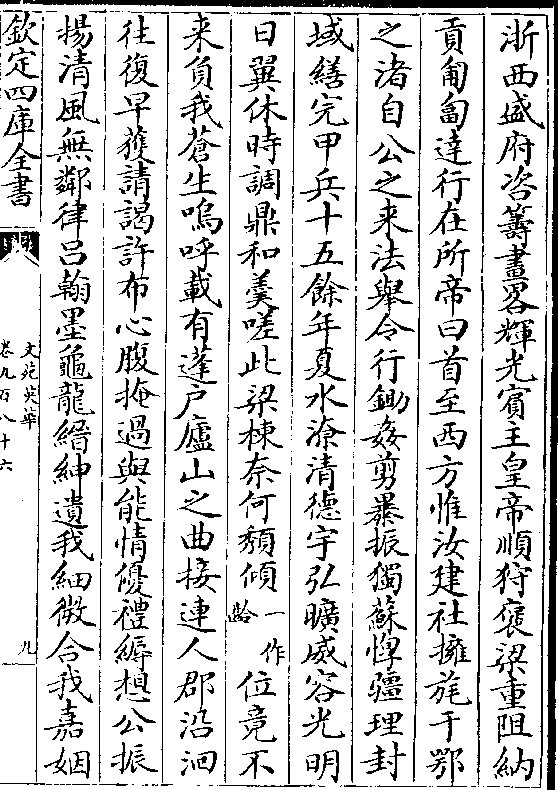 浙西盛府咨籌畫畧輝光賓主皇帝順狩褒梁重阻納
貢匍匐達行在所帝曰首至西方惟汝建社擁旄于鄂
之渚自公之来法舉令行鋤姦剪暴振獨蘇惸疆理封
域繕完甲兵十五餘年夏水潦清德宇弘曠威容光明
日冀休時調鼎和羮嗟此梁棟奈何頽傾一作齡位竟不
来負我蒼生嗚呼載有蓬戶廬山之曲接連人郡沿洄
往復早獲請謁許布心腹掩過與能情優禮縟想公振
揚清風無鄰律吕翰墨龜龍縉紳遺我細微合我嘉姻
欽定四庫全書
文苑英華
卷九百八十六
九